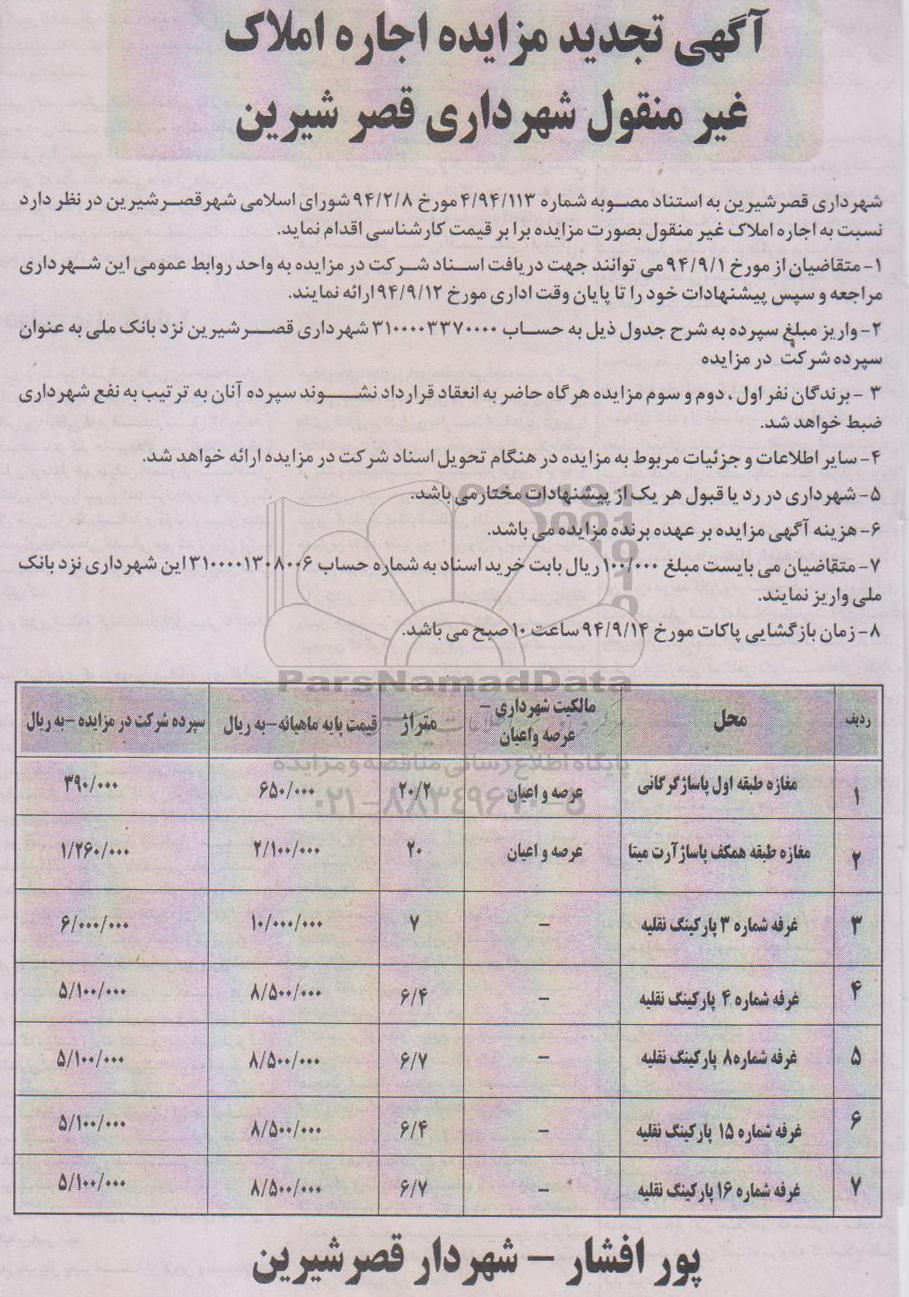 آگهی تجدید مزایده اجاره املاک
غیر منقول شهرداری قصر شیرین
شهرداری قصرشیرین به استناد مصوبه شماره ۴/۹۴/۱۱۳ مورخ ۹۴/۲/۸ شورای اسلامی شهرقصرشیرین در نظر دارد
نسبت به اجاره املاک غیر منقول بصورت مزایده برابر قیمت کارشناسی اقدام نماید.
۱- متقاضیان از مورخ ۹۴/۹/۱ می توانند جهت دریافت اسناد شرکت در مزایده به واحد روابط عمومی این شهرداری
مراجعه و سپس پیشنهادات خود را تا پایان وقت اداری مورخ ۹۴/۹/۱۲ ارائه نمایند.
۲- واریز مبلغ سپرده به شرح جدول ذیل به حساب ۳۱۰۰۰۰۳۳۷۰۰۰۰ شهرداری قصرشیرین نزد بانک ملی به عنوان
سپرده شرکت در مزایده
۳ - برندگان نفر اول ، دوم و سوم مزایده هرگاه حاضر به انعقاد قرارداد نشوند سپرده آنان به ترتیب به نفع شهرداری
ضبط خواهد شد.
۴- سایر اطلاعات و جزئیات مربوط به مزایده در هنگام تحویل اسناد شرکت در مزایده ارائه خواهد شد.
۵- شهرداری در رد یا قبول هر یک از پیشنهادات مختارمی باشد.
۶- هزینه آگهی مزایده بر عهده برنده مزایده می باشد.
۷- متقاضیان می بایست مبلغ ۱۰۰/۰۰۰ ریال بابت خرید اسناد به شماره حساب ۳۱۰۰۰۰۱۳۰۸۰۰۶ این شهرداری نزد بانک
ملی واریز نمایند.
۸- زمان بازگشایی پاکات مورخ ۹۴/۹/۱۴ ساعت ۱۰ صبح می باشد.
ParsNamadData
پایگاه اطلاع رسانی مناقصه و مزایده
ردیف محل مالکیت شهرداری – عرصه واعیان متراژ قیمت پایه ماهیانه-به ریال سپرده شرکت در مزایده -به ریال
۱ مغازه طبقه اول پاساژگرگانی عرصه و اعیان ۲۰/۲ ۶۵۰/۰۰۰ ۳۹۰/۰۰۰
۲ مغازه طبقه همکف پاساژ آرت میتا عرصه و اعیان ۲۰ ۲/۱۰۰/۰۰۰ ۱/۲۶۰/۰۰۰
۳ غرفه شماره ۳ پارکینگ نقلیه – ۷ ۱۰/۰۰۰/۰۰۰ ۶/۰۰۰/۰۰۰
۴ غرفه شماره ۴ پارکینگ نقلیه – ۶/۴ ۸/۵۰۰/۰۰۰ ۵/۱۰۰/۰۰۰
۵ غرفه شماره۸ پارکینگ نقلیه – ۶/۷ ۸/۵۰۰/۰۰۰ ۵/۱۰۰/۰۰۰
۶ غرفه شماره ۱۵ پارکینگ نقلیه – ۶/۴ ۸/۵۰۰/۰۰۰ ۵/۱۰۰/۰۰۰
۷ غرفه شماره ۱۶ پارکینگ نقلیه – ۶/۷ ۸/۵۰۰/۰۰۰ ۵/۱۰۰/۰۰۰
پور افشار – شهردار قصرشیرین